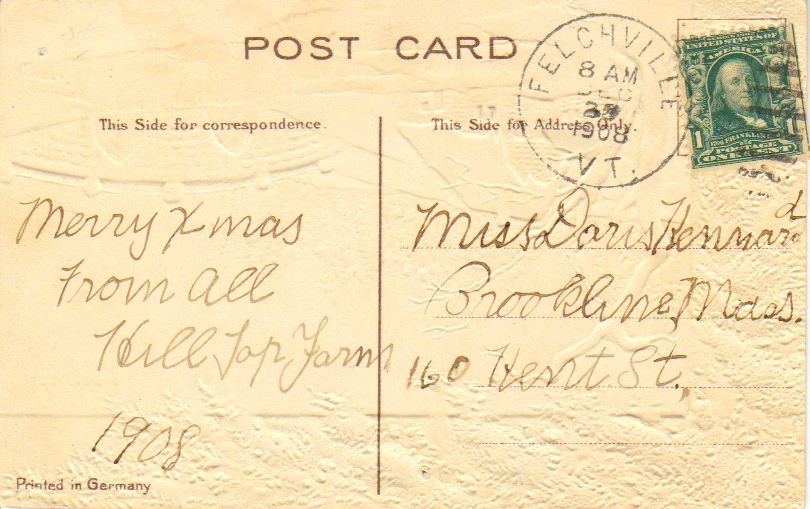 POST CARD
FELCHVILLE
8 AM
DEC
1908
VT.
UNITED STATES OF
AMERICA
1 FRANKLIN 1
POSTAGE
ONE CENT
This Side for correspondence.
This Side for Address Only.
Merry Xmas
From all
Hill Top Farm
1908
Miss Doris Kennard
Brookline, Mass.
160 Kent St.
Printed in Germany